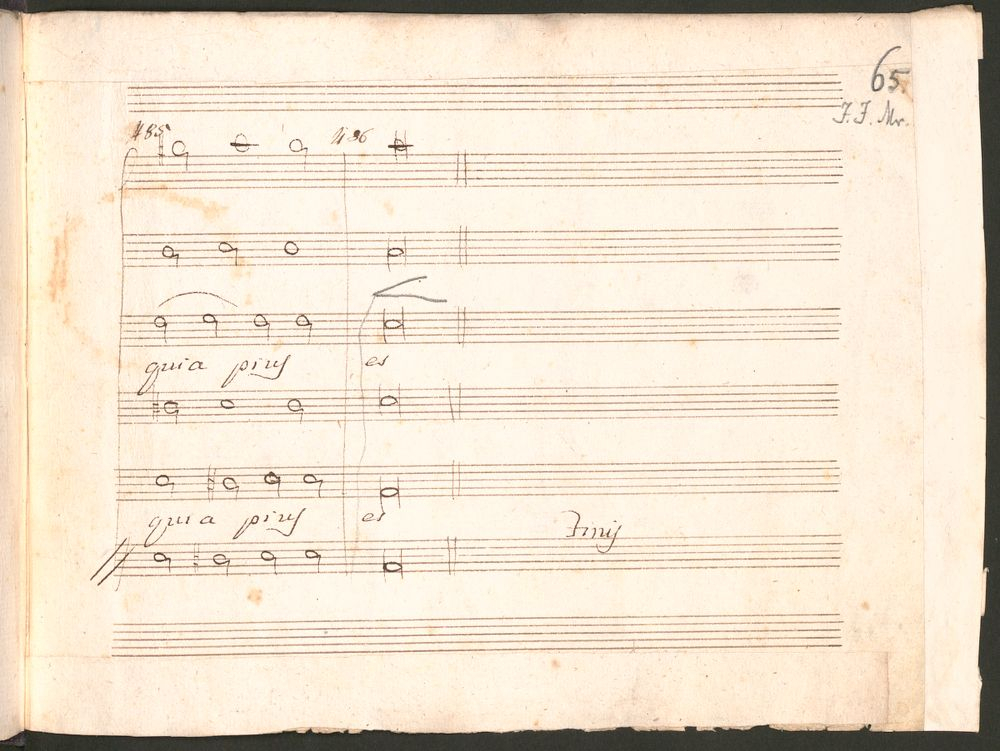 65.
J. J. Mr.
485 486
quia pius es
quia pius es
Finis